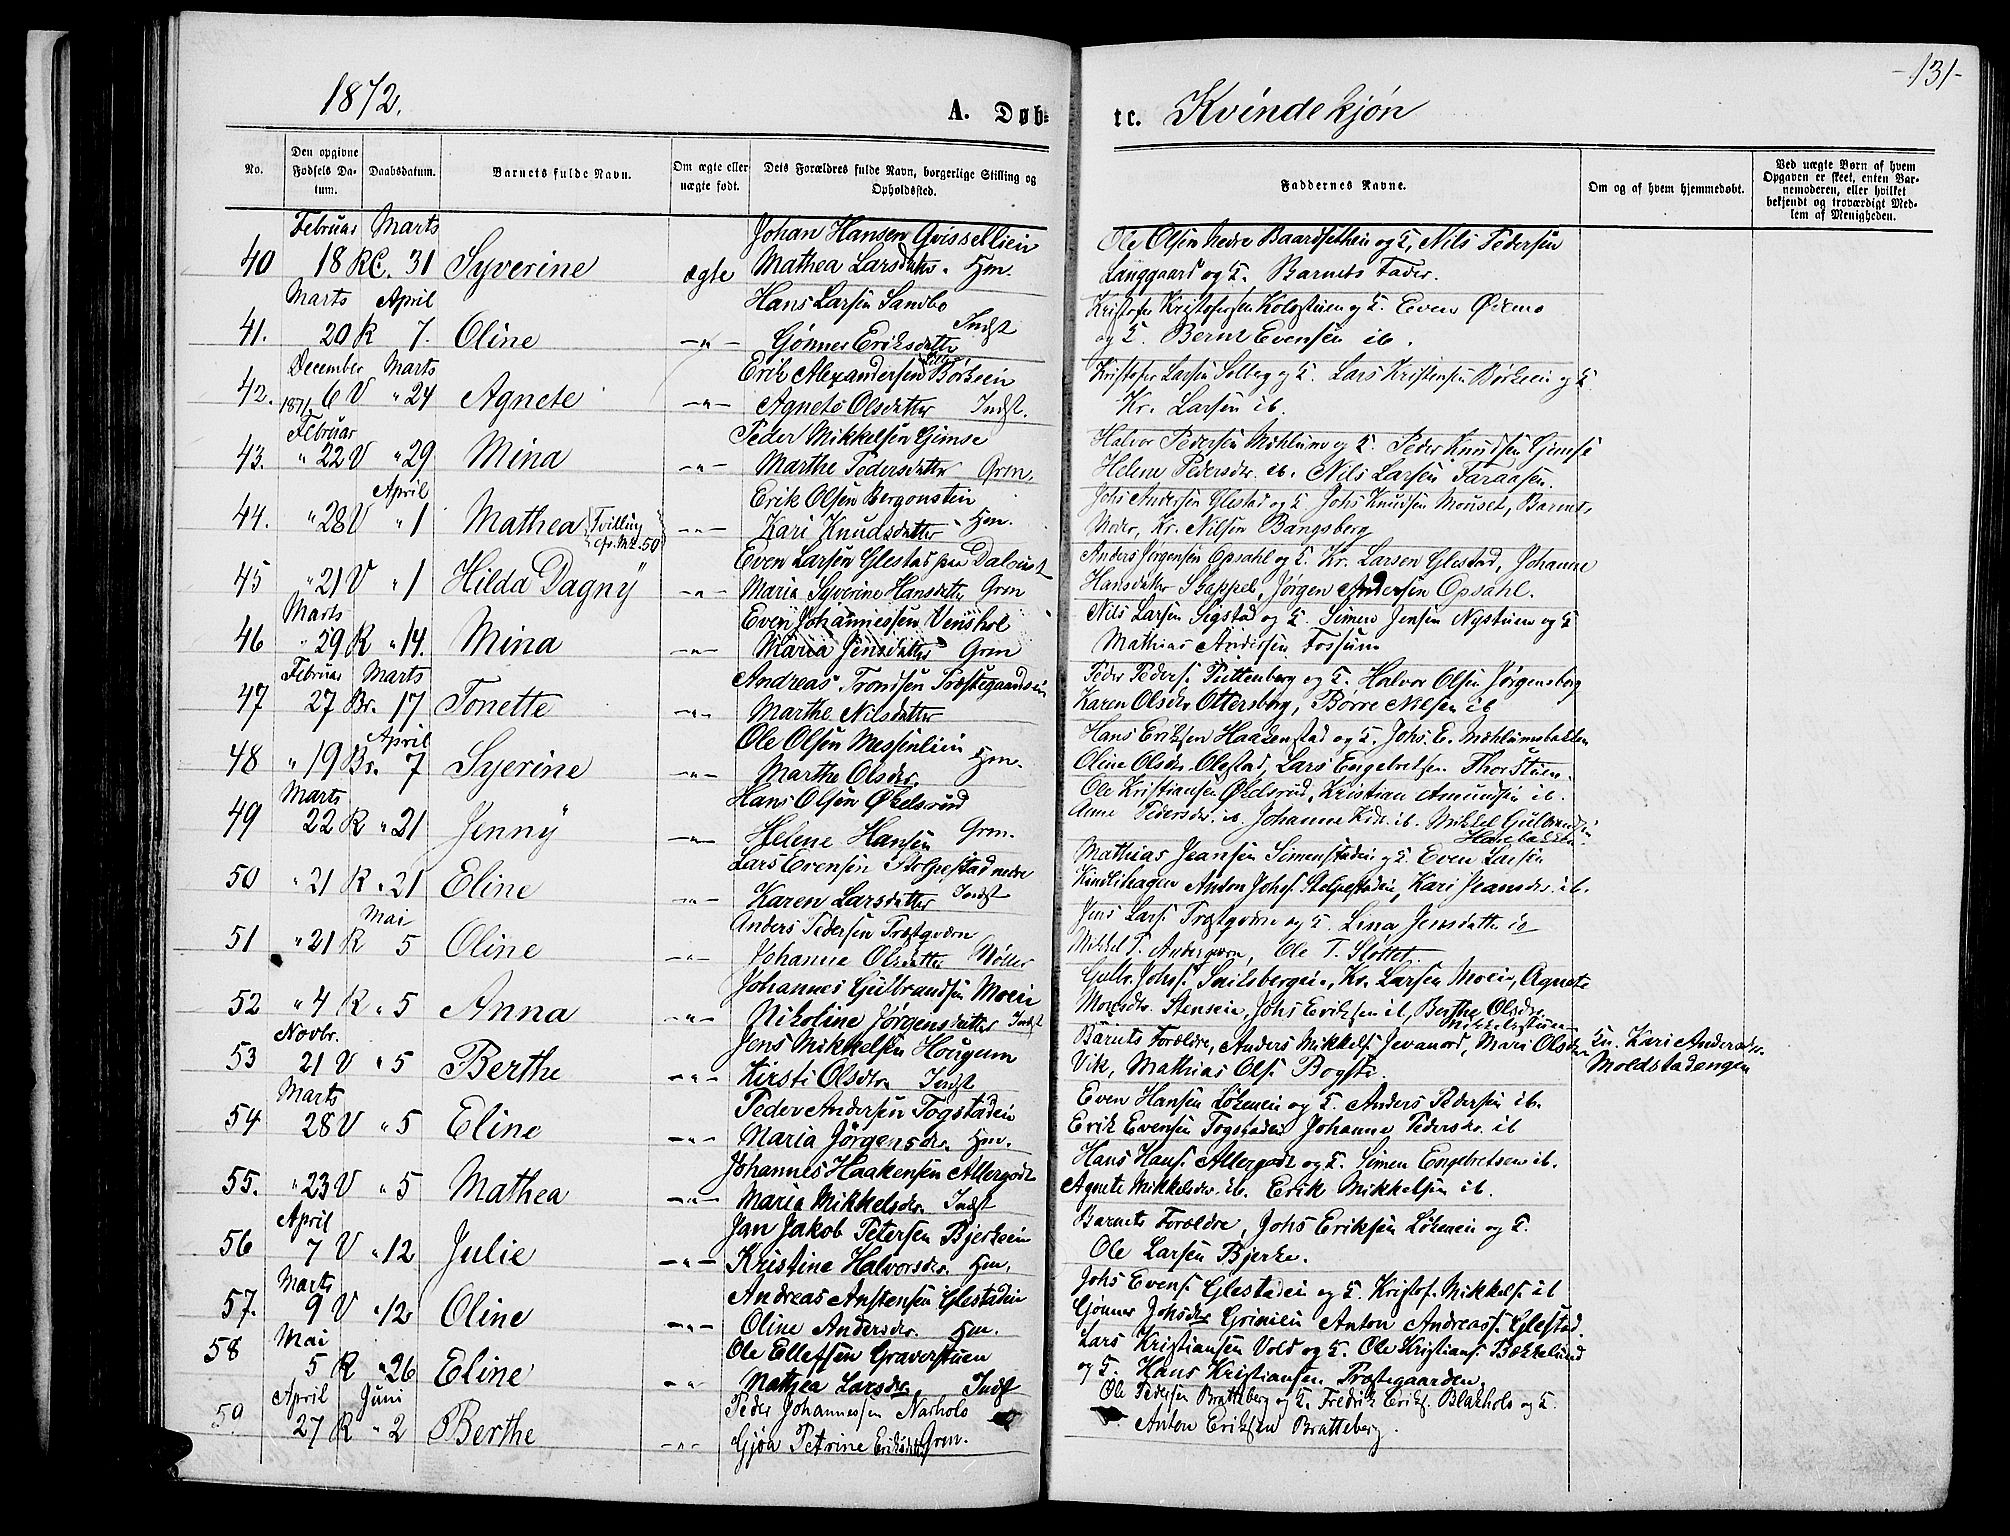 1872.
A. Døb-
te. Kvindekjøn
-131-
No.
Den opgivne Fødsels Datum.
Daabsdatum.
Barnets fulde Navn.
Om ægte eller uægte født.
Dets Forældres fulde Navn, borgerlige Stilling og Opholdssted.
Faddernes Navne.
Om og af hvem hjemmedøbt.
Ved uægte Børn af hvem Opgaven er skeet, enten Barnemoderen, eller hvilket bekjendt og troværdigt Medlem af Menigheden.
Februar Marts Johan Hansen
40 18 RC. 31 Syverine ægte Mathea Larsdatr. Hm.
Ole Olsen nedre Baardsethein og F. Nils Pedersen
Langgaard og F. Barnets Fader.
Marts April Hans Larsen Sandbo
41. 20 R 7. Oline -"- Gønner Eriksdatter Indst
Kristofer Kristofersen Kolostuen og F. Even Ødemo
og F. Bernt Evensen ib.
December Marts Erik Alexandersen Børkeein
42. 1871 6 V " 24 Agnete -"- Agnete Olsdatter Indst.
Kristofer Larsen Solberg og F. Lars Kristensen Børkeein og F.
Kr. Larsen ib.
Februar Peder Mikkelsen Gjemse
43. " 22 V " 29 Mina -"- Marthe Pedersdatter Grm.
Halvor Pedersen Mæhlum og F. Peder Knudsen Gjemse
Helene Pedersdr. ib. Nils Larsen Faraasen.
April Erik Olsen Bergonstein
44. " 28 V " 1 Mathea (Tvilling cfr. No. 50) -"- Kari Knudsdatter Hm.
Johs Andersen Glestad og F. Johs Knudsen Monset, Barnets
Moder, Kr. Nilsen Bangsberg
Even Larsen Glestad
45 " 21 V " 1 Hilda Dagny -"- Maria Syverine Hansdatter Grm
Anders Jørgensen Opsahl og F. Kr. Larsen Glestad, Johanne
Hansdatter Skappel, Jørgen Andersen Opsahl.
Marts Even Johannessen
46 " 29 R " 14. Mina -"- Maria Jensdatter Grm
Nils Larsen Sigstad og F. Simen Jensen Nystuen og F
Mathias Andersen Fossum
Februar Marts Andreas Trondsen Præstegaardsein
47 27 Br. 17 Tonette -"- Marthe Nilsdatter
Peder Peders. Puttenberg og F. Halvor Olsen Jørgensborg
Karen Olsdr. Ottersborg, Børre Nilsen ib
April Ole Olsen Messenlien
48 " 19 Br. 7 Syerine -"- Marthe Olsdr. Hm.
Hans Eriksen Haakenstad og F. Johs. E. Mæhlumsbakken
Oline Olsdr. Olestad, Lars Engebretsen Thorstuen.
Marts Hans Olsen Økelsrud
49 22 R " 21 Jenny -"- Helene Hansen Grm.
Ole Kristiansen Økelsrud, Kristian Amundsen ib.
Anne Pedersdr. ib. Johanne ib. Mikkel Gulbrandsen
Lars Evensen Stolpestad nedre
50 " 21 R " 21 Eline -"- Karen Larsdatter Indst
Mathias Jensen Simenstaden og F. Even Larsen
Anton Johs. Stolpestadein, Kari Jensdr. ib.
Mai Anders Pedersen Præstqværn
51 " 21 R 5 Oline -"- Johanne Olsdatter Møller
Jens Lars. Præstqværn og F. Lina Jensdatter ib
Mikkel P. Anderqværn, Ole T. Slottet.
Johannes Gulbrandsen Moein
52 " 4 R " 5 Anna -"- Nikoline Jørgensdatter Indst
Gulbr. Johs. Snilsbergein, Kr. Larsen Moein, Agnete
Stensein, Johs Eriksen ib, Berthe Olsdr.
Mikkelsstuen
Novbr. Jens Mikkelsen Hougum
53 21 V " 5 Berthe -"- Kirsti Olsdtr. Indst
Barnets Forældre, Anders Mikkels. Jevanord, Mari Olsdtr
Vik, Mathias Ols. Bogsti.
Kari Andersdr.
Moldstadengen
Marts Peder Andersen Togstadein
54 28 V " 5 Eline -"- Maria Jørgensdr. Hm.
Even Hansen Løkenein og F. Anders Pedersen ib.
Erik Evensen Togstaden Johanne Pedersdr. ib
Johannes Haakensen Allergodt
55. " 23 V " 5 Mathea -"- Maria Mikkelsdr. Indst
Hans Hans. Allergodt og F. Simen Engebretsen ib.
Agnete Mikkelsdr. ib. Erik Mikkelsen ib.
April Jan Jakob Petersen Bjerkein
56 7 V " 12 Julie -"- Kristine Halvorsdr. Hm.
Barnets Forældre, Johs Eriksen Løkenein og F.
Ole Larsen Bjerke.
Marts Andreas Anstensen Glestadein
57. 9 V " 12 Oline -"- Oline Andersdr. Hm.
Johs Evens. Glestadein og F. Kristof. Mikkels. ib
Gønner Johsdr. Grinien Anton Andreass. Glestad.
Mai Ole Ellefsen Graverstuen
58 5 R " 26 Eline " " Mathea Larsdr. Indst
Lars Kristiansen Vold og F. Ole Kristians. Bækkelund
og F. Hans Kristiansen Præstegaarden.
April Juni Peder Johannessen Narholo
59. 27 R " 2 Berthe -"- Gjøa Petrine Eriksdatter Grm.
Ole Pedersen Bratteberg og F. Fredrik Eriks. Blakholo og F.
Anton Eriksen Bratteberg.